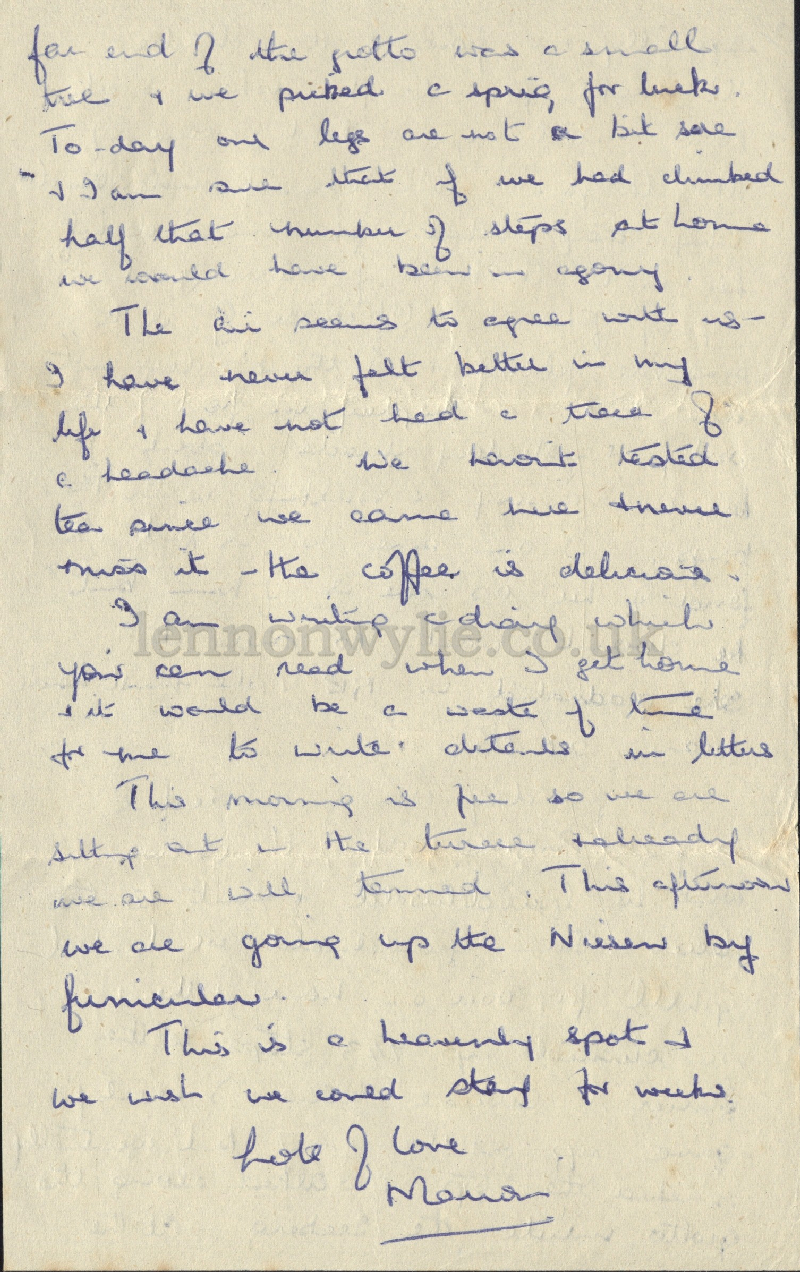 far end of the grotto was a small
tree & we picked a sprig for luck.
To-day our legs are not a bit sore
& I am sure that if we had climbed
half that number of steps at home
we would have been in agony.
The air seems to agree with us -
I have never felt better in my
life & have not had a trace of
a headache. We havn't tasted
tea since we came here & never
miss it - the coffee is delicious.
I am writing a diary which
lennonwylie.co.uk
you can read when I get home
& it would be a waste of time
for me to write details in letters
This morning is free so we are
sitting out in the terrace & already
we are well tanned. This afternoon
we are going up the Niesen by
funicular.
This is a heavenly spot &
we wish we could stay for weeks.
Lots of love
Marion